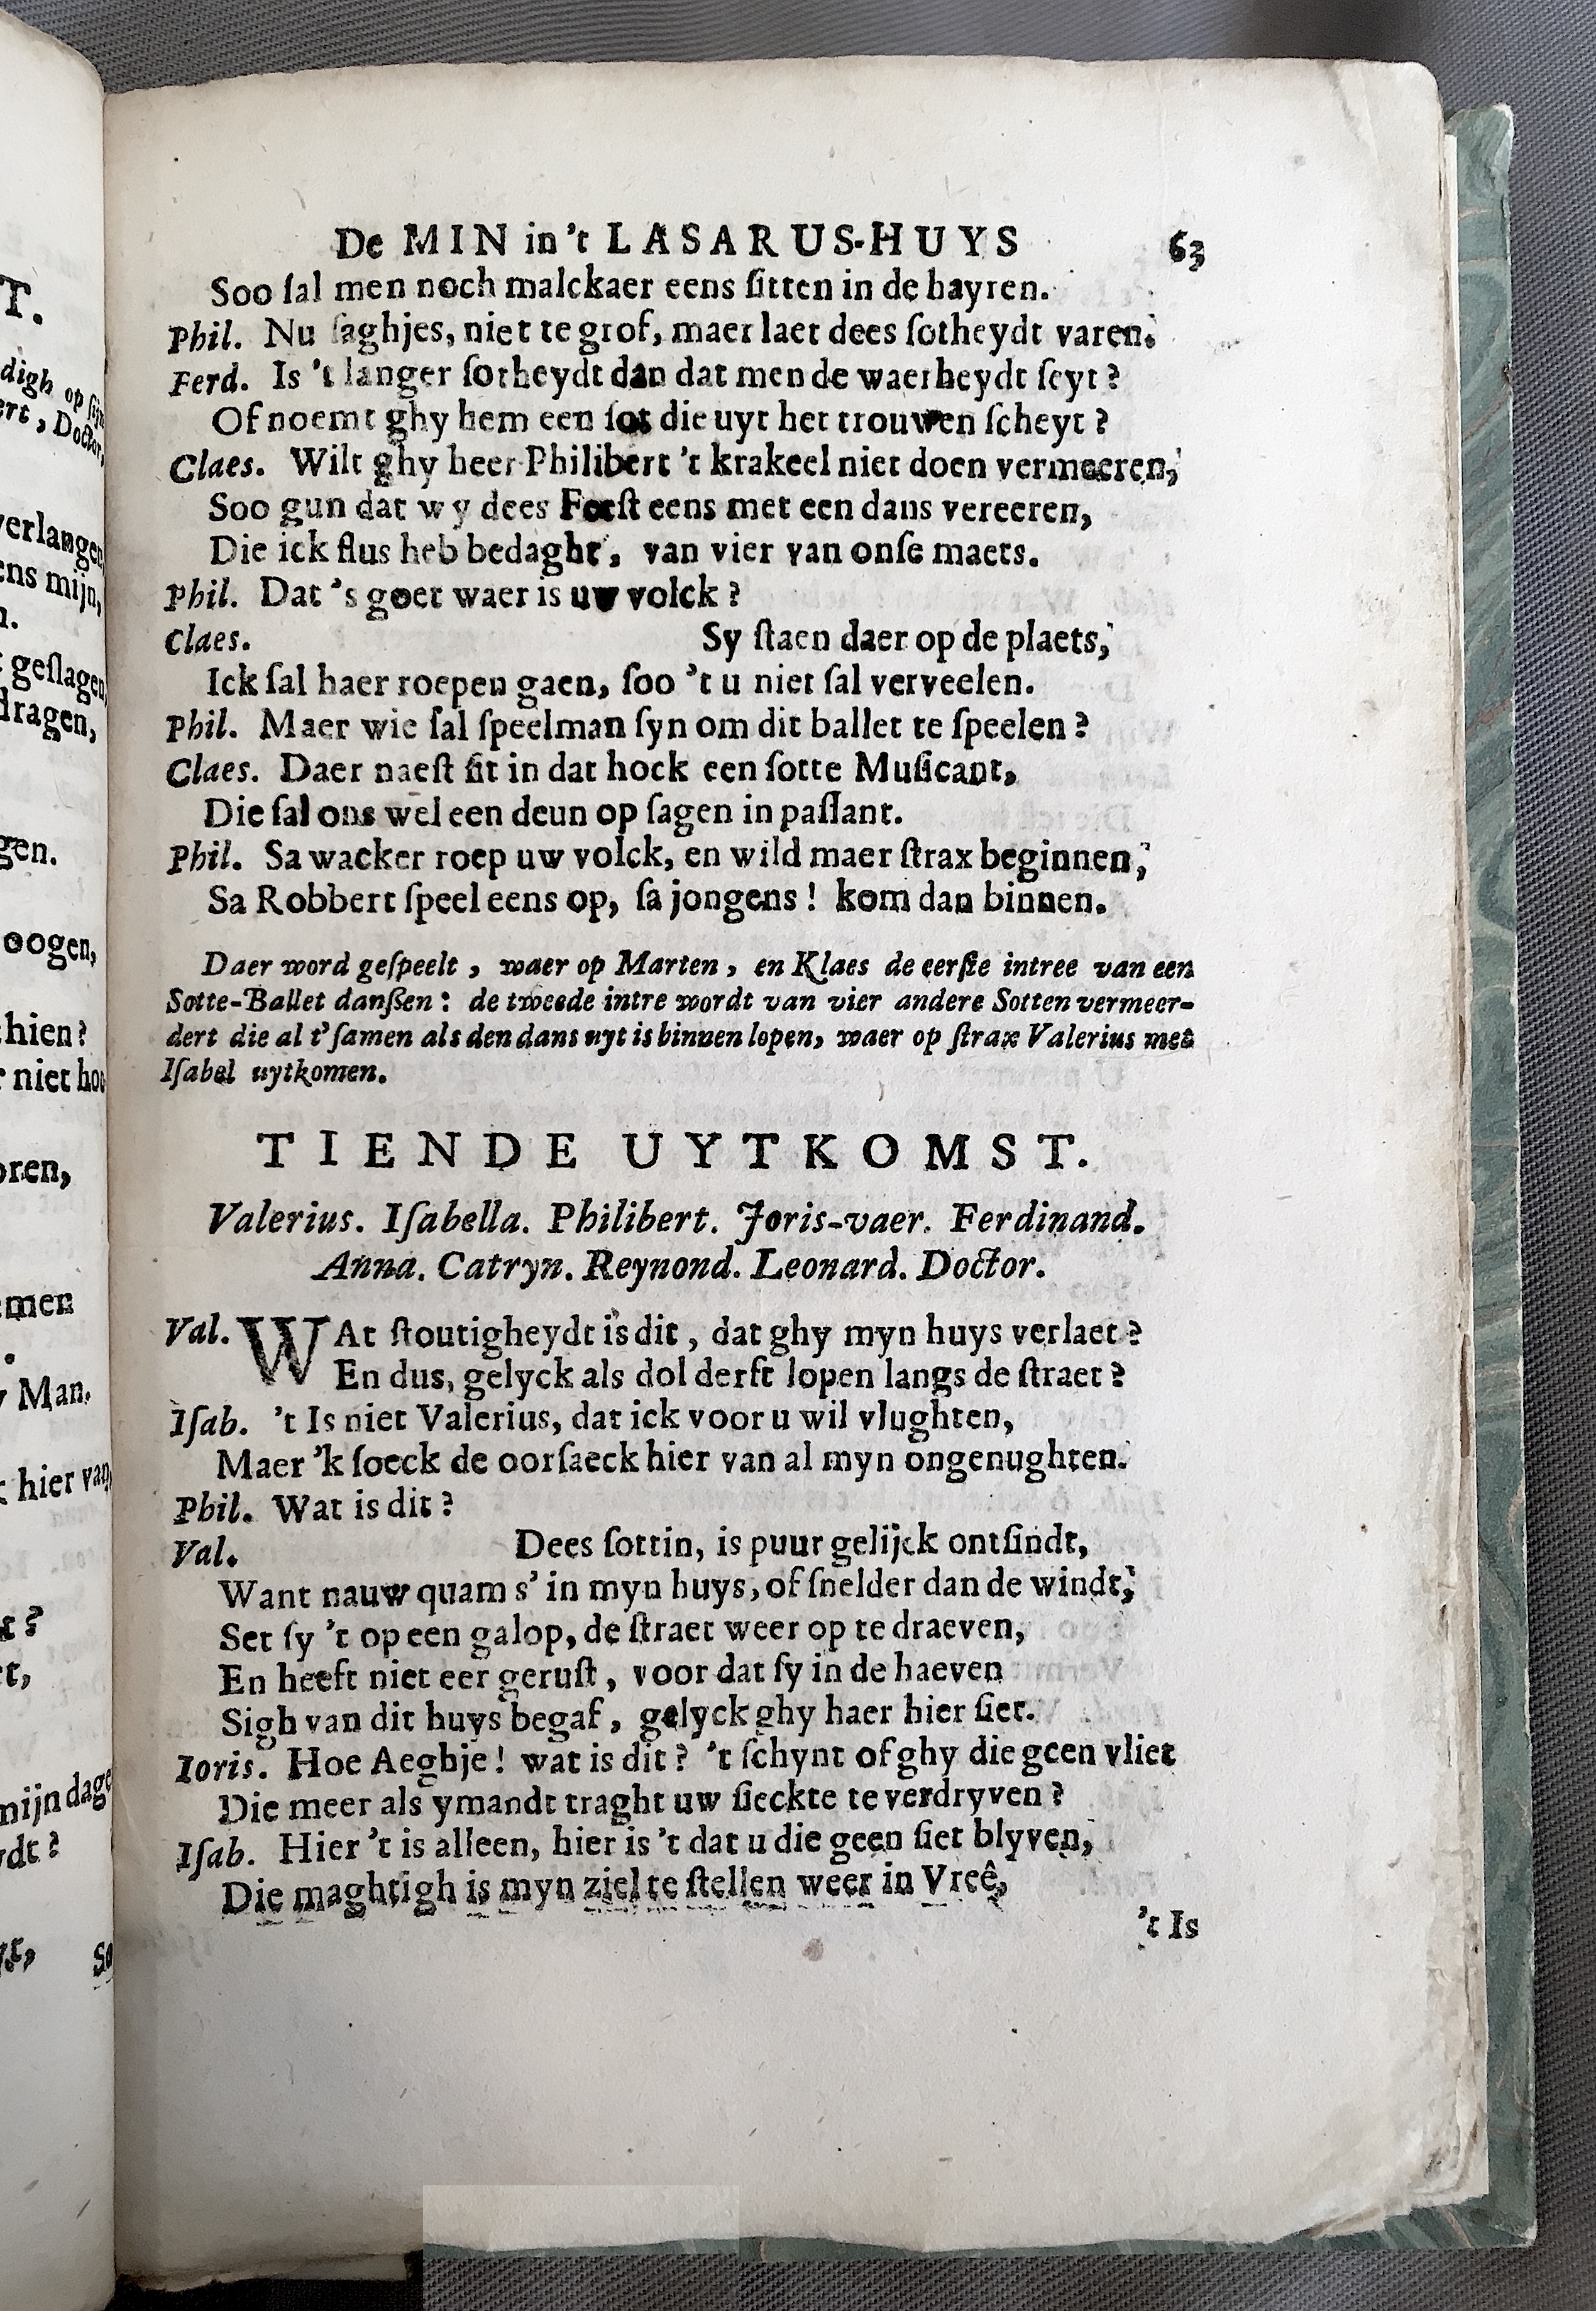 De MIN in 't LASARUS-HUYS 63
Soo ſal men noch malckaer eens ſitten in de hayren.
Phil. Nu ſaghjes, niet te grof, maer laet dees ſotheydt varen.
Ferd. Is 't langer ſotheydt dan dat men de waerheydt ſeyt?
Of noemt ghy hem een ſot die uyt het trouwen ſcheyt?
Claes. Wilt ghy heer Philibert 't krakeel niet doen vermeeren,
Soo gun dat wy dees Feeſt eens met een dans vereeren,
Die ick flus heb bedaght, van vier van onſe maets.
Phil. Dat 's goet waer is uw volck?
Claes. Sy ſtaen daer op de plaets,
Ick ſal haer roepen gaen, ſoo 't u niet ſal verveelen.
Phil. Maer wie ſal ſpeelman ſyn om dit ballet te ſpeelen?
Claes. Daer naeſt ſit in dat hock een ſotte Muſicant,
Die ſal ons wel een deun op ſagen in paſſant.
Phil. Sa wacker roep uw volck, en wild maer ſtrax beginnen,
Sa Robbert ſpeel eens op, ſa jongens! kom dan binnen.
Daer word geſpeelt, waer op Marten, en Klaes de eerſte intree van een
Sotte-Ballet danſſen: de tweede intre wordt van vier andere Sotten vermeer-
dert die al t'ſamen als den dans uyt is binnen lopen, waer op ſtrax Valerius met
Iſabel uytkomen.
TIENDE UYTKOMST.
Valerius. Iſabella. Philibert. Joris-vaer. Ferdinand.
Anna. Catryn. Reynond. Leonard. Doctor.
Val. WAt ſtoutigheydt is dit, dat ghy myn huys verlaet?
En dus, gelyck als dol derft lopen langs de ſtraet?
Iſab. 't Is niet Valerius, dat ick voor u wil vlughten,
Maer 'k ſoeck de oorſaeck hier van al myn ongenughten.
Phil. Wat is dit?
Val. Dees ſottin, is puur gelijck ontſindt,
Want nauw quam s' in myn huys, of ſnelder dan de windt,
Set ſy 't op een galop, de ſtraet weer op te draeven,
En heeft niet eer geruſt, voor dat ſy in de haeven
Sigh van dit huys begaf, gelyck ghy haer hier ſiet.
Ioris. Hoe Aeghje! wat is dit? 't ſchynt of ghy die geen vliet
Die meer als ymandt traght uw ſieckte te verdryven?
Iſab. Hier 't is alleen, hier is 't dat u die geen ſiet blyven,
Die maghtigh is myn ziel te ſtellen weer in Vreê,
't Is